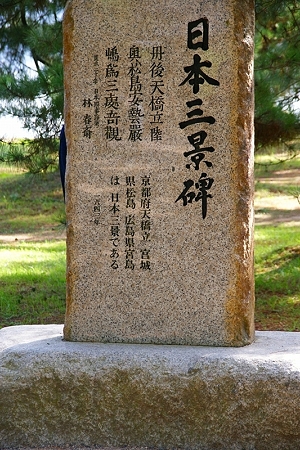 日本三景碑
丹後天橋立陸
奥松島安藝嚴
嶋為三處奇觀
林春斎
京都府天橋立 宮城
県松島 広島県宮島
は 日本三景である